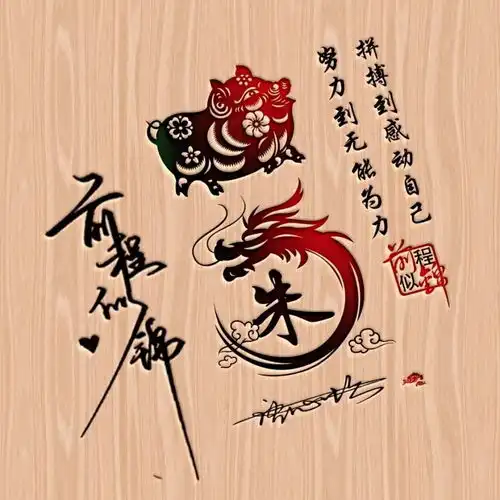 拼搏到感动自己
努力到无能为力
前程似锦
朱
前程似锦